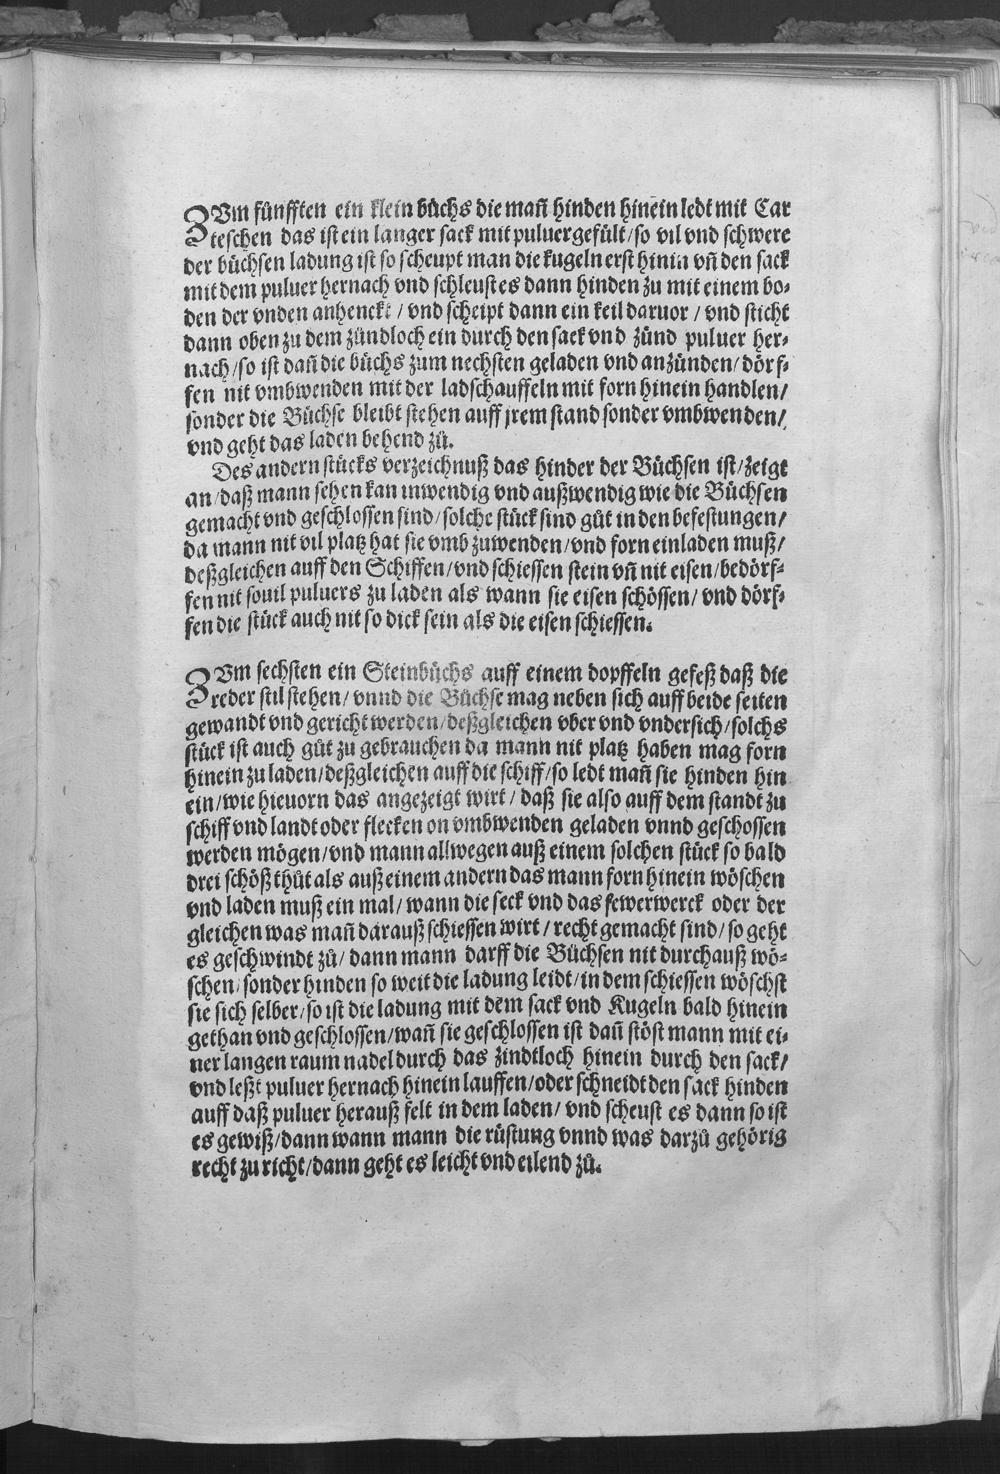 ZUm fünfften ein klein büchs die mañ hinden hinein ledt mit Car
teschen das ist ein langer sack mit puluer gefült / so vil vnd schwere
der büchsen ladung ist so scheupt man die kugeln erst hinin vñ den sack
mit dem puluer hernach vnd schleust es dann hinden zu mit einem bo⸗
den der vnden anhenckt / vnd scheipt dann ein keil daruor / vnd sticht
dann oben zu dem zündloch ein durch den sack vnd zünd puluer her⸗
nach / so ist dañ die büchs zum nechsten geladen vnd anzünden / dörf⸗
fen nit vmbwenden mit der ladschauffeln mit forn hinein handlen /
sonder die Büchse bleibt stehen auff jrem stand sonder vmbwenden /
vnd geht das laden behend zů.
Des andern stücks verzeichnuß das hinder der Büchsen ist / zeigt
an / daß mann sehen kan inwendig vnd außwendig wie die Büchsen
gemacht vnd geschlossen sind / solche stück sind gůt in den befestungen /
da mann nit vil platz hat sie vmb zuwenden / vnd forn einladen muß /
deßgleichen auff den Schiffen / vnd schiessen stein vñ nit eisen / bedörf⸗
fen nit souil puluers zu laden als wann sie eisen schössen / vnd dörf⸗
fen die stück auch nit so dick sein als die eisen schiessen.
ZUm sechsten ein Steinbüchs auff einem dopffeln gefeß daß die
reder stil stehen / vnnd die Büchse mag neben sich auff beide seiten
gewandt vnd gericht werden / deßgleichen vber vnd vndersich / solchs
stück ist auch gůt zu gebrauchen da mann nit platz haben mag forn
hinein zu laden / deßgleichen auff die schiff / so ledt mañ sie hinden hin
ein / wie hieuorn das angezeigt wirt / daß sie also auff dem standt zu
schiff vnd landt oder flecken on vmbwenden geladen vnnd geschossen
werden mögen / vnd mann allwegen auß einem solchen stück so bald
drei schöß thůt als auß einem andern das mann forn hinein wöschen
vnd laden muß ein mal / wann die seck vnd das fewerwerck oder der
gleichen was mañ darauß schiessen wirt / recht gemacht sind / so geht
es geschwindt zů / dann mann darff die Büchsen nit durchauß wö⸗
schen / sonder hinden so weit die ladung leidt / in dem schiessen wöschst
sie sich selber / so ist die ladung mit dem sack vnd Kugeln bald hinein
gethan vnd geschlossen / wañ sie geschlossen ist dañ stöst mann mit ei⸗
ner langen raum nadel durch das zindtloch hinein durch den sack /
vnd leßt puluer hernach hinein lauffen / oder schneidt den sack hinden
auff daß puluer herauß felt in dem laden / vnd scheust es dann so ist
es gewiß / dann wann mann die rüstung vnnd was darzů gehörig
recht zu richt / dann geht es leicht vnd eilend zů.